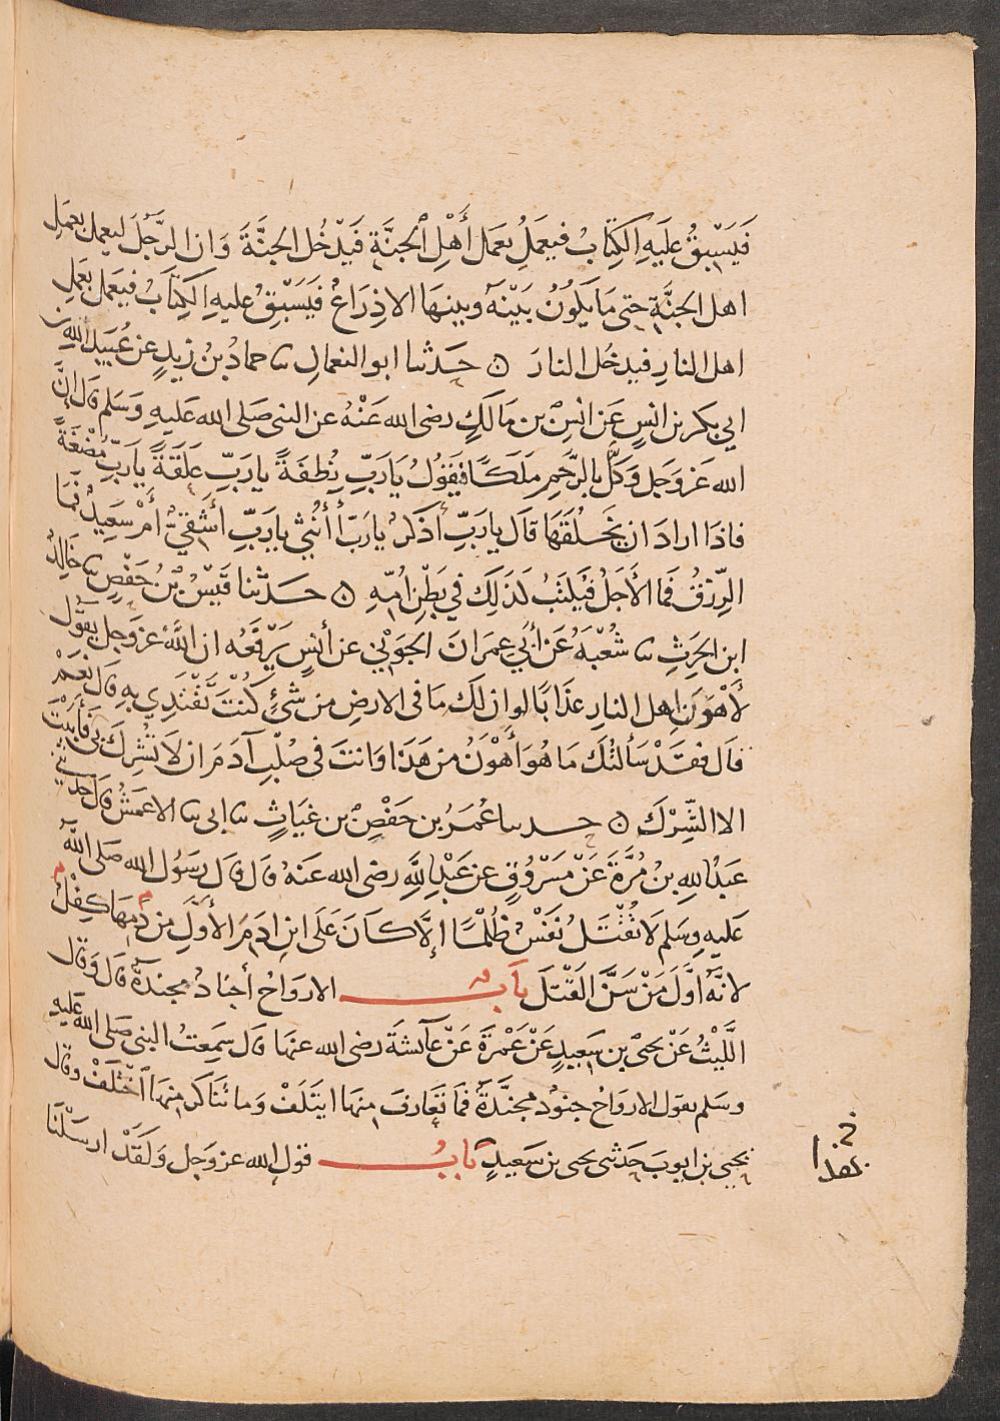 فَيَسْبِقُ عَلَيهِ الكِتَابُ فيعمَلُ بعَمل أَهْلِ الجنَّةِ فَيَدْخُل الجنَّةَ وَان الرَّجُلَ ليعمل بعَمَلِ
اهل الجنَّةِ حتى مَا يَكُونُ بَيْنَهُ وبينهَا الا ذِرَاعٌ فَيَسْبِقُ عليهِ الكِتَابُ فيَعمَل بعَمَلِ
اهل النارِ فيدخُل النارَ ۞ حَدثنا ابو النعمانِ نا حمادُ بنُ زيدٍ عن عُبَيدِ اللهِ بن
ابي بكر بن انسٍ عَن انسِ بن مَالكٍ رضى الله عَنْهُ عن النبى صَلى الله عَليهِ وَسَلم قَالَ إنَّ
الله عَز وَجَل وَكَّلَ بالرَّحِمِ مَلَكًا فيَقُولُ يَارَبِّ نُطفَةً يارَبِّ عَلَقَةً يارَبِّ مُضْغَةً
فاذَا ارادَ ان يَخلُقَهَا قَال يارَبِّ أذَكرٌ يارَبِّ أُنْثى يارَبِّ أشَقِيٌّ أمْ سَعِيدٌ فَمَا
الرِّزقُ فَما الأَجَلُ فَيكتَبُ كَذَلِكَ فِي بَطْنِ امِّهِ ۞ حَدَّثنا قَيْسُ بْنُ حَفْصٍ نا خَالِدُ
ابن الحرِثِ نا شُعْبَةُ عَن أَبي عمرَانَ الجَوْنِي عن أنَسٍ يَرْفَعُه ان اللَّهَ عز وَجل يقُول
لأَهْوَنِ اهل النارِ عذابًا لو ان لك مَا فى الارضِ من شَئٍ كُنتَ تَفْتَدِي بهِ قَالَ نَعَمْ
قَال فَقَدْ سَألتُكَ مَا هُوَ أَهْوَنُ من هَذَا وَانتَ فى صُلْبِ آدَمَ ان لاَ تُشْرِكَ بي فَأَبَيْتَ
الا الشِّرْكَ ۞ حدثنا عُمَرُ بن حَفْصِ بن غيَاثٍ نا ابى نا الاعمَشُ قَالَ حدثني
عَبدُ اللهِ بنُ مُرَّةَ عَنْ مَسْرُوقٍ عن عَبْدِ اللَّهِ رضى الله عَنهُ قَال قَال رَسُول الله صَلى اللهُ
عَليهِ وسَلم لاَ تُقْتَلُ نَفْسٌ ظُلْمًا إلَّا كَانَ عَلَى ابنِ ادَمَ الأَوَّلِ من دَمِهَا كِفْلٌ
لانَّهُ اوَّلُ مَنْ سَنَّ القَتْلَ بَابٌ الارواحُ أجنادٌ مجندَةٌ قَالَ وَقَال
اللَّيْثُ عَنْ يحيى بن سَعِيدٍ عَنْ عَمْرَةَ عَنْ عَآئشَةَ رضى الله عنهَا قَال سَمِعتُ النبى صَلى الله عَليهِ
وسَلم يقول الارواحُ جنودٌ مجنَّدَةٌ فمَا تعَارفَ منهَا ايتَلَفَ وَما تنَاكر منهَا اخْتَلَفَ وقَال
يحيى بن ايوبَ حَدثنى يحيى بن سَعِيدٍ بَابُ قول الله عز وَجل وَلَقَدْ ارسَلْنَا
بهذا